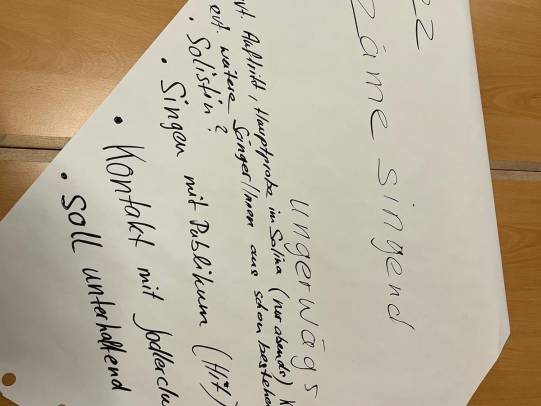 zäme singend
ungerwägs
vt. Auftritt, Hauptprobe im Salina (nur abends) K
evt. weitere Sänger/Innen aus schon bestehen
• Solistin?
• Singen mit Publikum (Hit)
• Kontakt mit Jodlerclu
• Soll unterhaltend